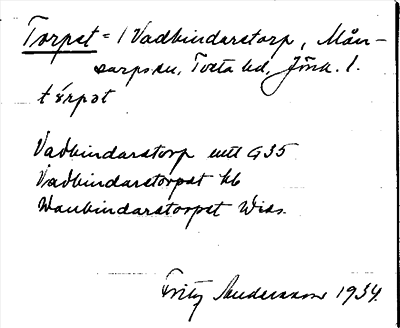 Torpet = 1 Vadbindarstorp, Mån-
sarps sn, Tveta hd, Jönk. l.
tórpət
Vadbindarstorp utt G35
Vadbindarstorpet kb
Wanbindarstorpet Wids.
Fritz Andersson 1934.